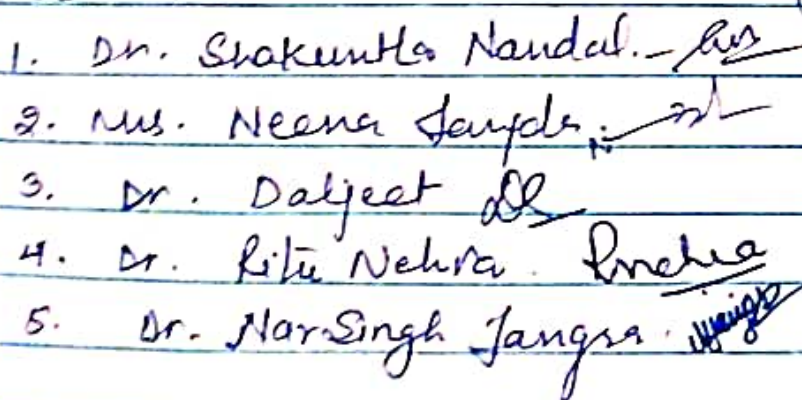 1. Dr. Shakuntla Nandal. -
2. Ms. Neena
3. Dr. Daljeet
4. Dr. Ritu Nehra.
5. Dr. NarSingh Jangra.